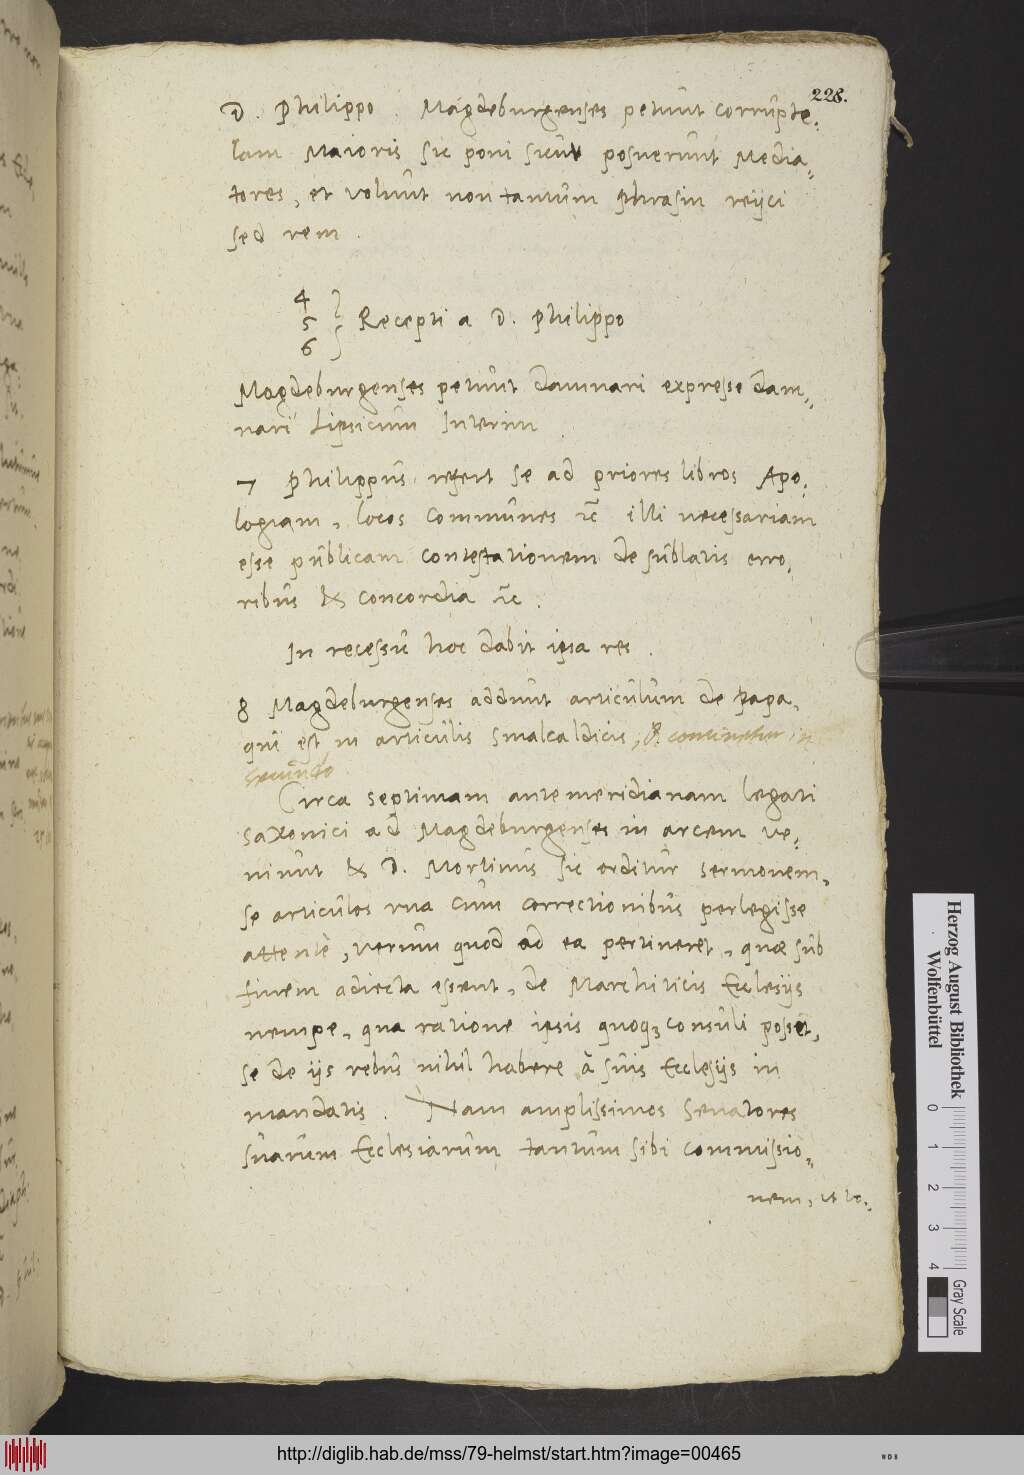 228.
D. Philippo. Magdeburgenses petunt corrupte„
lam Maioris sic poni sicut posuerunt Media„
tores, et volunt non tantum phrasin reijci
sed rem.
4
5 } Recepti a D. Philippo
6
Magdeburgenses petunt damnari expresse dam„
nari Lipsicum Interim
7 Philippus refert se ad priores libros Apo„
logiam, locos communes ꝛc illi necessariam
esse publicam contestationem de sublatis erro„
ribus & concordia ꝛc.
In recessu hoc dabit ipsa res.
8 Magdeburgenses addunt articulum de Papa,
qui est in articulis Smalcaldicis, & continetur in
secundo
Circa septimam antemeridianam legati
Saxonici ad Magdeburgenses in arcem ve„
niunt & D. Morlinus sic orditur sermonem,
se articulos una cum correctionibus perlegisse
attente, verum quod ad ea pertineret, quae sub
finem adiecta essent, de Marchiticis Ecclesijs
nempe, qua ratione ipsis quoqꝫ consuli posset,
se de ijs rebus nihil habere à suis Ecclesijs in
mandatis. Nam amplissimos Senatores
suarum Ecclesiarum tantum sibi commissio„
nem, ut lo„
Herzog August Bibliothek
Wolfenbüttel
0 1 2 3 4
Gray Scale
http://diglib.hab.de/mss/79-helmst/start.htm?image=00465